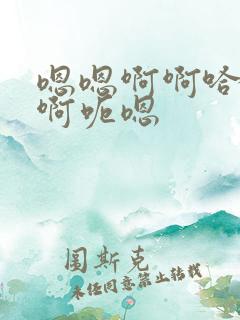 嗯嗯啊啊哈
啊呃嗯
图斯克
未经同意禁止转载